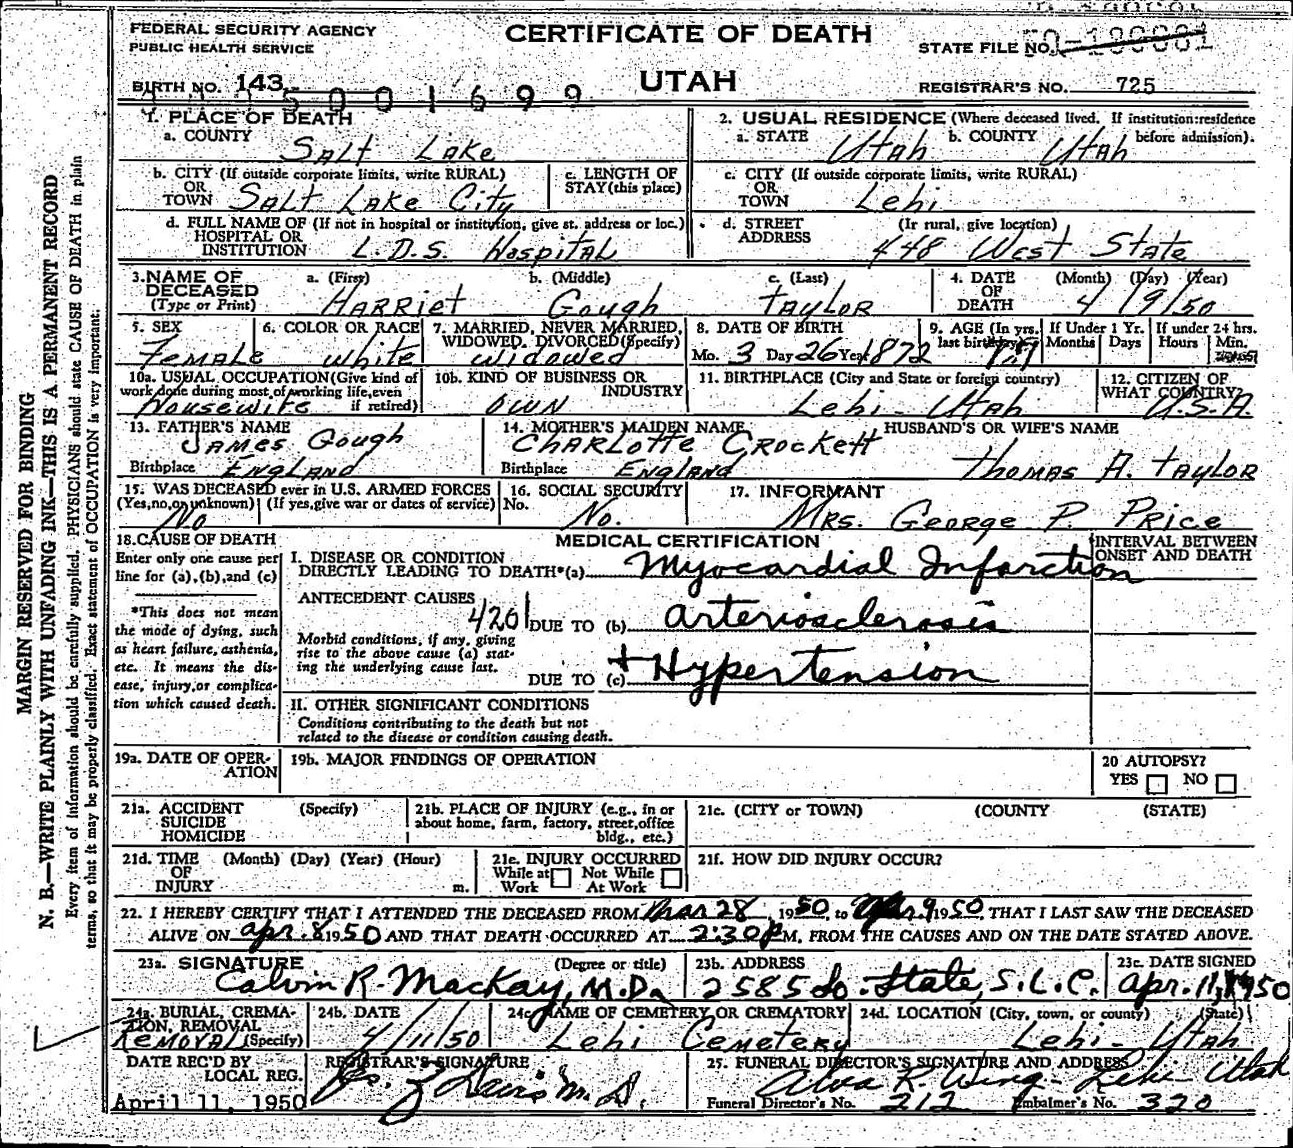 FEDERAL SECURITY AGENCY
PUBLIC HEALTH SERVICE
CERTIFICATE OF DEATH
STATE FILE NO.
BIRTH NO. 143
UTAH
REGISTRAR'S NO. 725
5001699
1. PLACE OF DEATH
a. COUNTY Salt Lake
2. USUAL RESIDENCE (Where deceased lived. If institution:residence before admission).
a. STATE Utah b. COUNTY Utah
b. CITY (If outside corporate limits, write RURAL)
OR TOWN Salt Lake City
c. LENGTH OF STAY (this place)
c. CITY (If outside corporate limits, write RURAL)
OR TOWN Lehi
d. FULL NAME OF (If not in hospital or institution, give st. address or loc.)
HOSPITAL OR INSTITUTION L.D.S. Hospital
d. STREET ADDRESS (If rural, give location)
448 West State
3. NAME OF DECEASED (Type or Print)
a. (First) Harriet b. (Middle) Gough c. (Last) Taylor
4. DATE OF DEATH (Month) (Day) (Year)
4/9/50
5. SEX
Female
6. COLOR OR RACE
White
7. MARRIED, NEVER MARRIED, WIDOWED, DIVORCED (Specify)
Widowed
8. DATE OF BIRTH
Mo. 3 Day 26 Year 1872
9. AGE (In yrs. last birthday)
If Under 1 Yr. Months Days
If under 24 hrs. Hours Min.
10a. USUAL OCCUPATION (Give kind of work done during most of working life, even if retired)
Housewife
10b. KIND OF BUSINESS OR INDUSTRY
Own
11. BIRTHPLACE (City and State or foreign country)
Lehi - Utah
12. CITIZEN OF WHAT COUNTRY?
U.S.A.
13. FATHER'S NAME
James Gough
Birthplace England
14. MOTHER'S MAIDEN NAME
Charlotte Crockett
Birthplace England
HUSBAND'S OR WIFE'S NAME
Thomas A. Taylor
15. WAS DECEASED ever in U.S. ARMED FORCES
(Yes, no, or unknown) (If yes, give war or dates of service)
No
16. SOCIAL SECURITY No.
No.
17. INFORMANT
Mrs. George P. Price
18. CAUSE OF DEATH
Enter only one cause per line for (a), (b), and (c)
*This does not mean the mode of dying, such as heart failure, asthenia, etc. It means the disease, injury, or complication which caused death.
MEDICAL CERTIFICATION
INTERVAL BETWEEN ONSET AND DEATH
I. DISEASE OR CONDITION
DIRECTLY LEADING TO DEATH*(a) Myocardial Infarction
ANTECEDENT CAUSES
4201 DUE TO (b) arteriosclerosis
Morbid conditions, if any, giving rise to the above cause (a) stating the underlying cause last.
DUE TO (c) + Hypertension
II. OTHER SIGNIFICANT CONDITIONS
Conditions contributing to the death but not related to the disease or condition causing death.
19a. DATE OF OPERATION
19b. MAJOR FINDINGS OF OPERATION
20 AUTOPSY?
YES NO
21a. ACCIDENT SUICIDE HOMICIDE (Specify)
21b. PLACE OF INJURY (e.g., in or about home, farm, factory, street, office bldg., etc.)
21c. (CITY or TOWN) (COUNTY) (STATE)
21d. TIME OF INJURY (Month) (Day) (Year) (Hour) m.
21e. INJURY OCCURRED
While at Work Not While At Work
21f. HOW DID INJURY OCCUR?
22. I HEREBY CERTIFY THAT I ATTENDED THE DECEASED FROM Mar 28, 1950, to Apr. 9, 1950, THAT I LAST SAW THE DECEASED
ALIVE ON Apr. 8 1950 AND THAT DEATH OCCURRED AT 2:30 P.M. FROM THE CAUSES AND ON THE DATE STATED ABOVE.
23a. SIGNATURE (Degree or title)
Calvin R. MacKay, M.D.
23b. ADDRESS
2585 So. State, S.L.C.
23c. DATE SIGNED
Apr. 11, 1950
24a. BURIAL, CREMATION, REMOVAL (Specify)
Removal
24b. DATE
4/11/50
24c. NAME OF CEMETERY OR CREMATORY
Lehi Cemetery
24d. LOCATION (City, town, or county) (State)
Lehi - Utah
DATE REC'D BY LOCAL REG.
April 11, 1950
REGISTRAR'S SIGNATURE
25. FUNERAL DIRECTOR'S SIGNATURE AND ADDRESS
Alva R. Wing - Lehi Utah
Funeral Director's No. 212 Embalmer's No. 320
MARGIN RESERVED FOR BINDING
N. B.—WRITE PLAINLY WITH UNFADING INK—THIS IS A PERMANENT RECORD
Every item of information should be carefully supplied. PHYSICIANS should state CAUSE OF DEATH in plain
terms, so that it may be properly classified. Exact statement of OCCUPATION is very important.